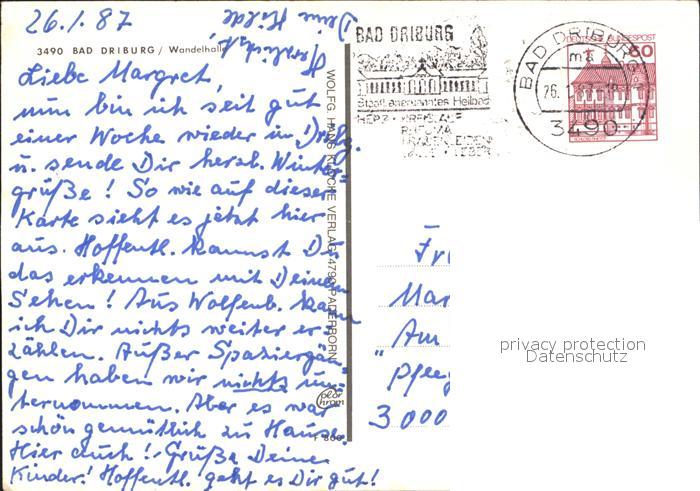 26.1.87
3490 BAD DRIBURG / Wandelhalle
Liebe Margret,
nun bin ich seit gut
einer Woche wieder in Drbg.
u. sende Dir herzl. Winter-
grüße! So wie auf dieser
Karte sieht es jetzt hier
aus. Hoffentl. kannst Du
das erkennen mit Deinem
Sehen! Aus Wolfenb. kann
ich Dir nichts weiter er-
zählen. Außer Spaziergän-
gen haben wir nichts un-
ternommen. Aber es war
schön gemütlich zu Hause.
Hier auch! Grüße Deine
Kinder! Hoffentl. geht es Dir gut!
Herzlichst,
Deine Hilde
WOLFG. HANS KLOCKE VERLAG, 4790 PADERBORN
BAD DRIBURG
Staatl. anerkanntes Heilbad
HERZ KREISLAUF
RHEUMA
FRAUENLEIDEN
BAD DRIBURG
26.1.87
3490
DEUTSCHE BUNDESPOST
60
Mar
Am
3000
privacy protection
Datenschutz